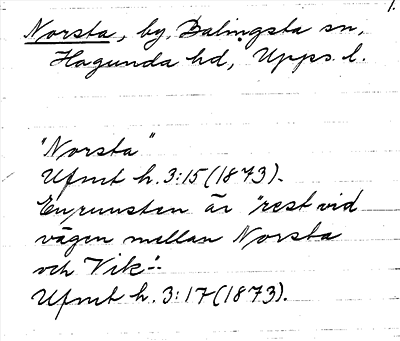 1.
Norsta, by, Balingsta sn,
Hagunda hd, Upps. l.
"Norsta"
Ufmt h. 3:15 (1873).
En runsten är "rest vid
vägen mellan Norsta
och Vik".
Ufmt h. 3:17 (1873).